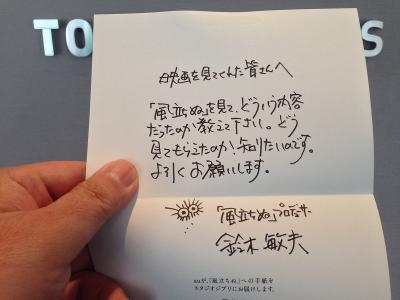 TO
S
映画を見てくれた皆さんへ
「風立ちぬ」を見て、どういう内容
だったのか教えて下さい。どう
見てもらえたのか、知りたいのです。
よろしくお願いします。
「風立ちぬ」プロデューサー
鈴木敏夫
auが、「風立ちぬ」への手紙を
スタジオジブリにお届けします。